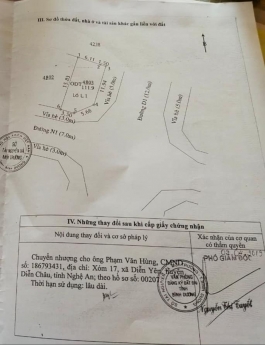 III. Sơ đồ thửa đất, nhà ở và tài sản khác gắn liền với đất
4238
6.11
4892
ODT
4893
111.9
LÔ L1
Vỉa hè (3.0m)
Đường N1 (7.0m)
Vỉa hè (3.0m)
Đường D1 (12.0m)
Vỉa hè (3.0m)
IV. Những thay đổi sau khi cấp giấy chứng nhận
Nội dung thay đổi và cơ sở pháp lý
Xác nhận của cơ quan
có thẩm quyền
Chuyển nhượng cho ông Phạm Văn Hùng, CMND
số: 186793431, địa chỉ: Xóm 17, xã Diễn Yên, huyện
Diễn Châu, tỉnh Nghệ An; theo hồ sơ số: 00207
Thời hạn sử dụng: lâu dài.
PHÓ GIÁM ĐỐC
VĂN PHÒNG
ĐĂNG KÝ ĐẤT ĐAI
TỈNH
BÌNH DƯƠNG